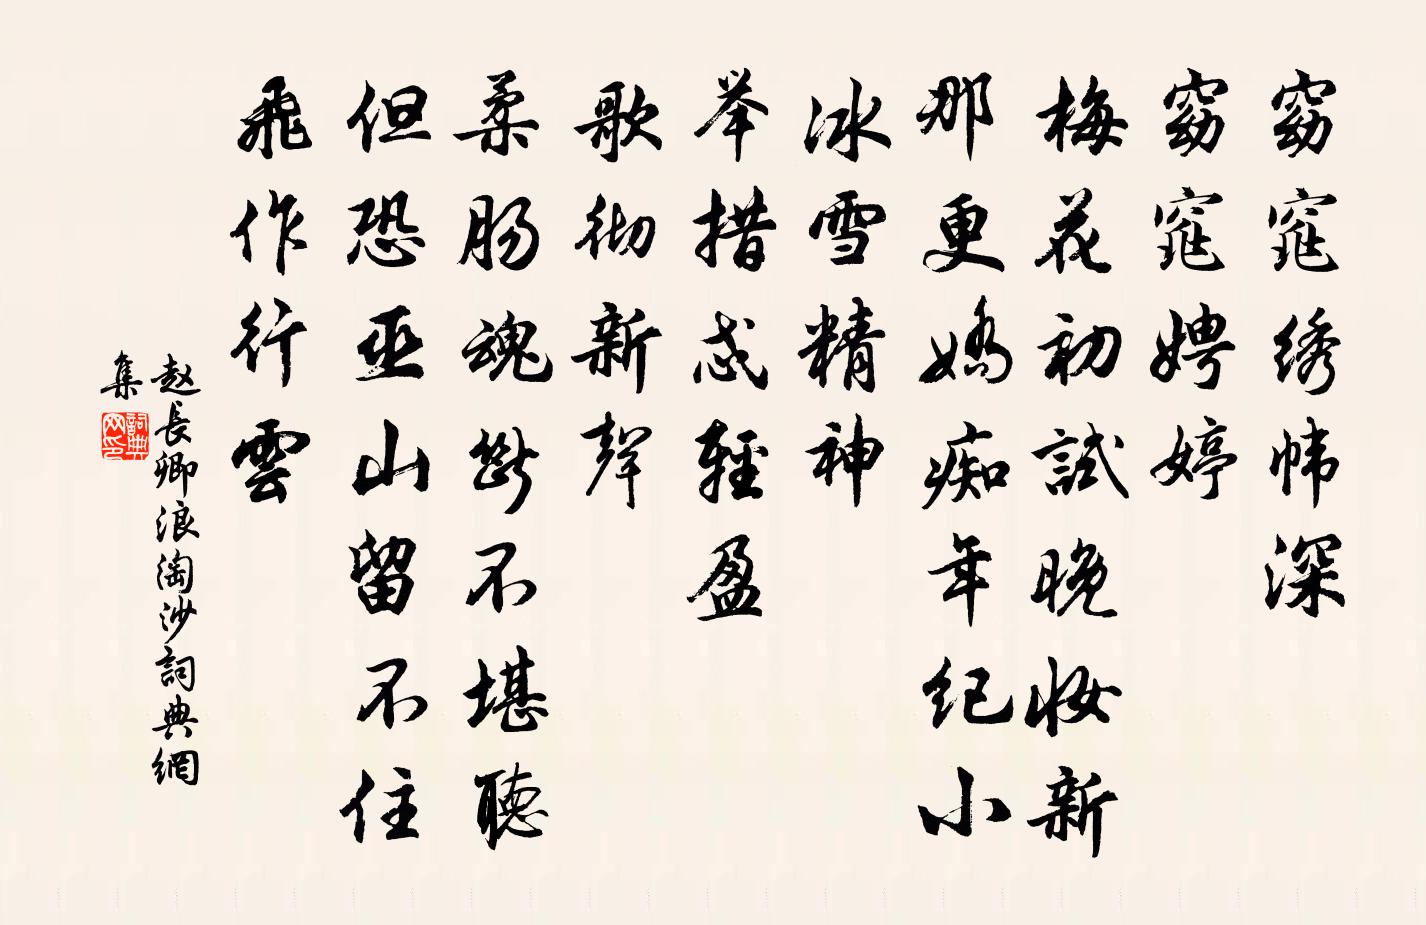 窈窕绣帏深
窈窕娉婷
梅花初試晚妆新
那更嬌痴年纪小
冰雪精神
举措忒輕盈
歌彻新聲
柔肠魂斷不堪聽
但恐巫山留不住
飛作行雲
赵長卿浪淘沙詞典網
集
詞典网印